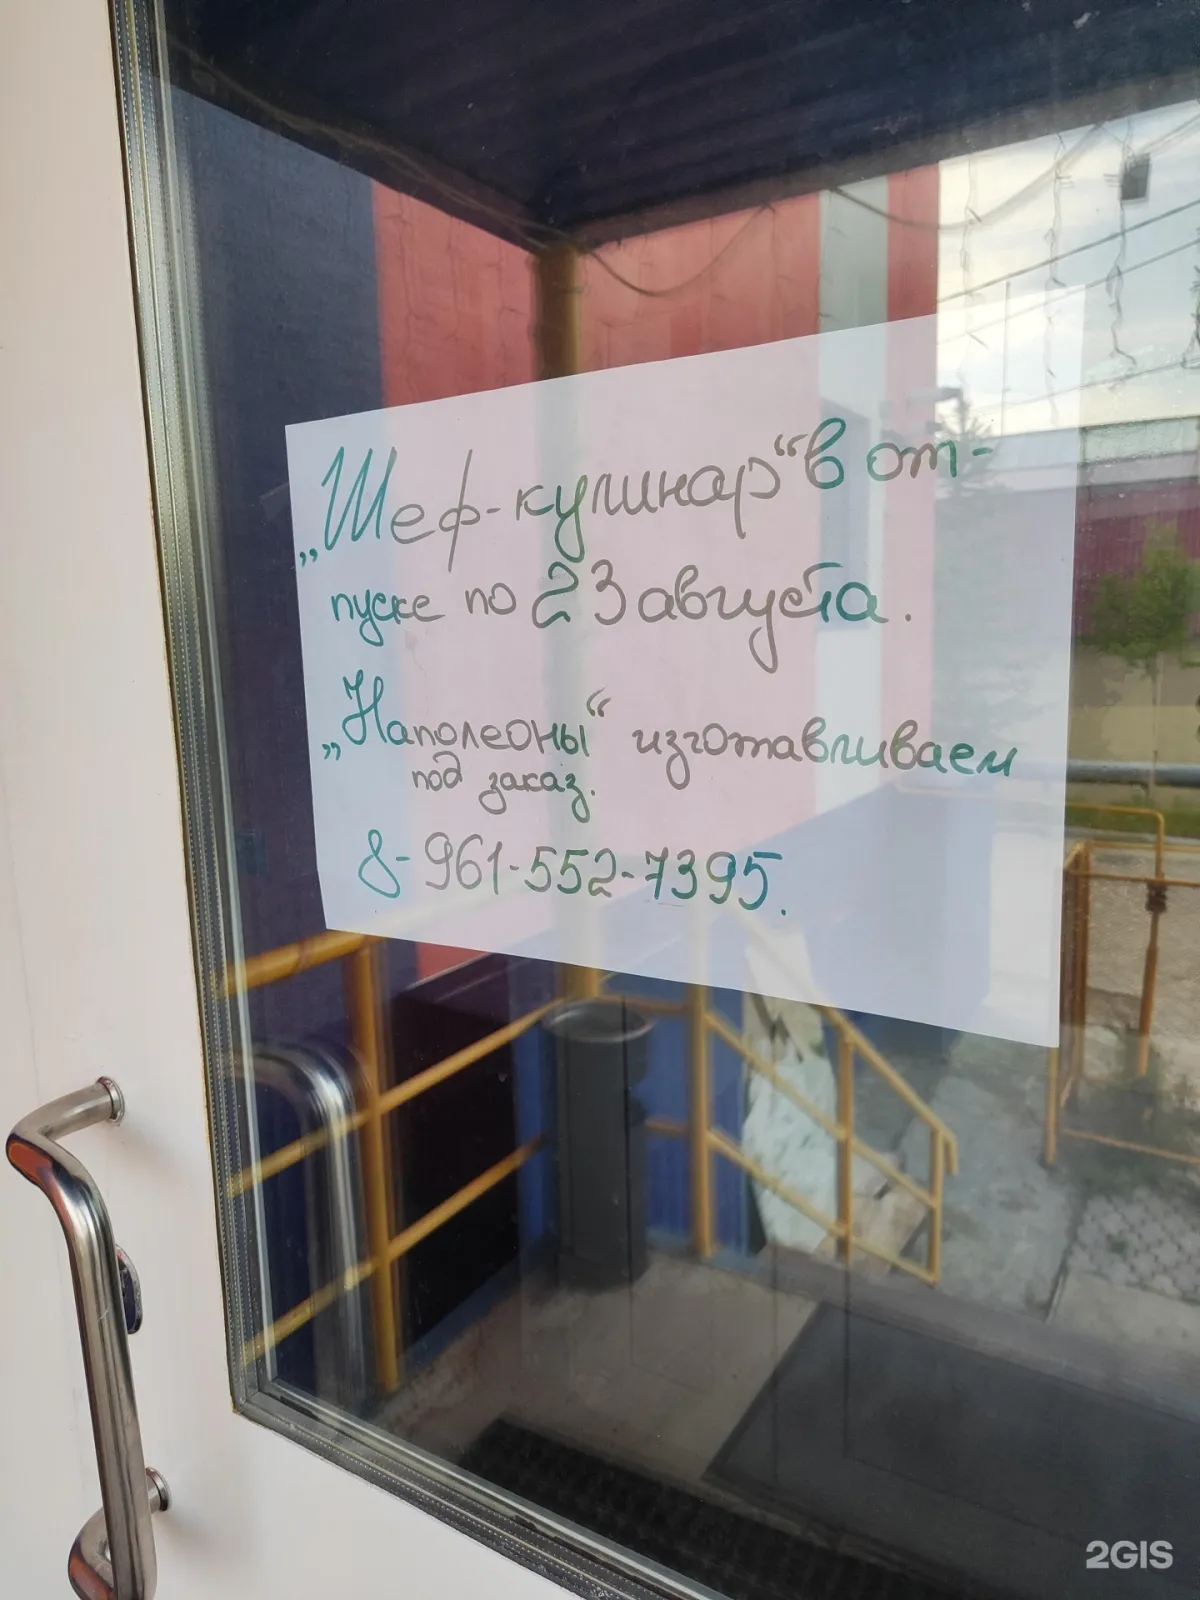 „Шеф-кулинар“ в от-
пуске по 23 августа.
„Наполеоны“ изготавливаем
под заказ.
8-961-552-7395.
2GIS